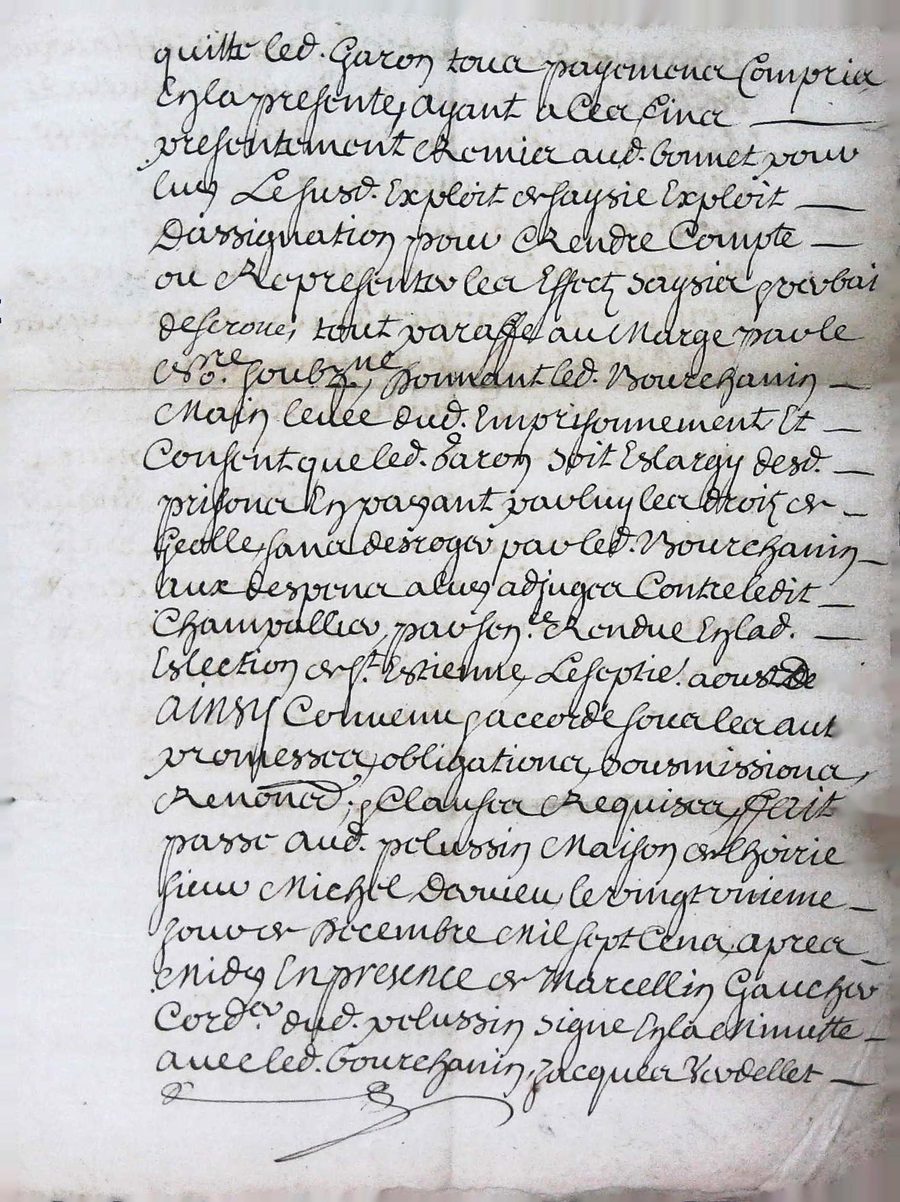 quitte led. Garon tous payemens Compris
En la presente, ayant a Ces fins
presentement Remis aud. bonnet pour
luy Le susd. Exploit de saysie Exploit
Dassignation pour Rendre Compte
ou Representer les Effectz saysis, verbal
descroue, tout paraffe au Marge par le
no.re soubz.né, Donnant led. Bourchanin
Main levée dud. Emprisonnement Et
Consent que led. Garon soit Eslargy desd.
prisons En payant par luy les droitz de
Geolle, sans desroger par led. Bourchanin
aux despens a luy adjuges Contre ledit
Champallier, par sen.ce Rendue En lad.
Eslection de st. Estienne, Le septie. aoust
AINSY Convenu, accorde sous les aut
promesses, obligations, sousmissions,
Renonc., Clauses Requises, ffait
passé aud. pelussin Maison de lhoirie
sieur Michel Dervieu, le vingt unieme
Jour de Decembre Mil sept Cens, apres
Midy En presence de Marcellin Gaucher
Cord.er dud. pelussin signe En la Minutte
avec led. bourchanin, Jacques Verdellet